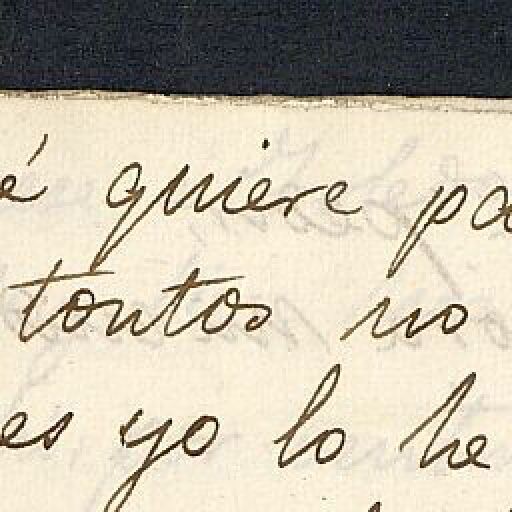 é quiere pa
tontos no
es yo lo he